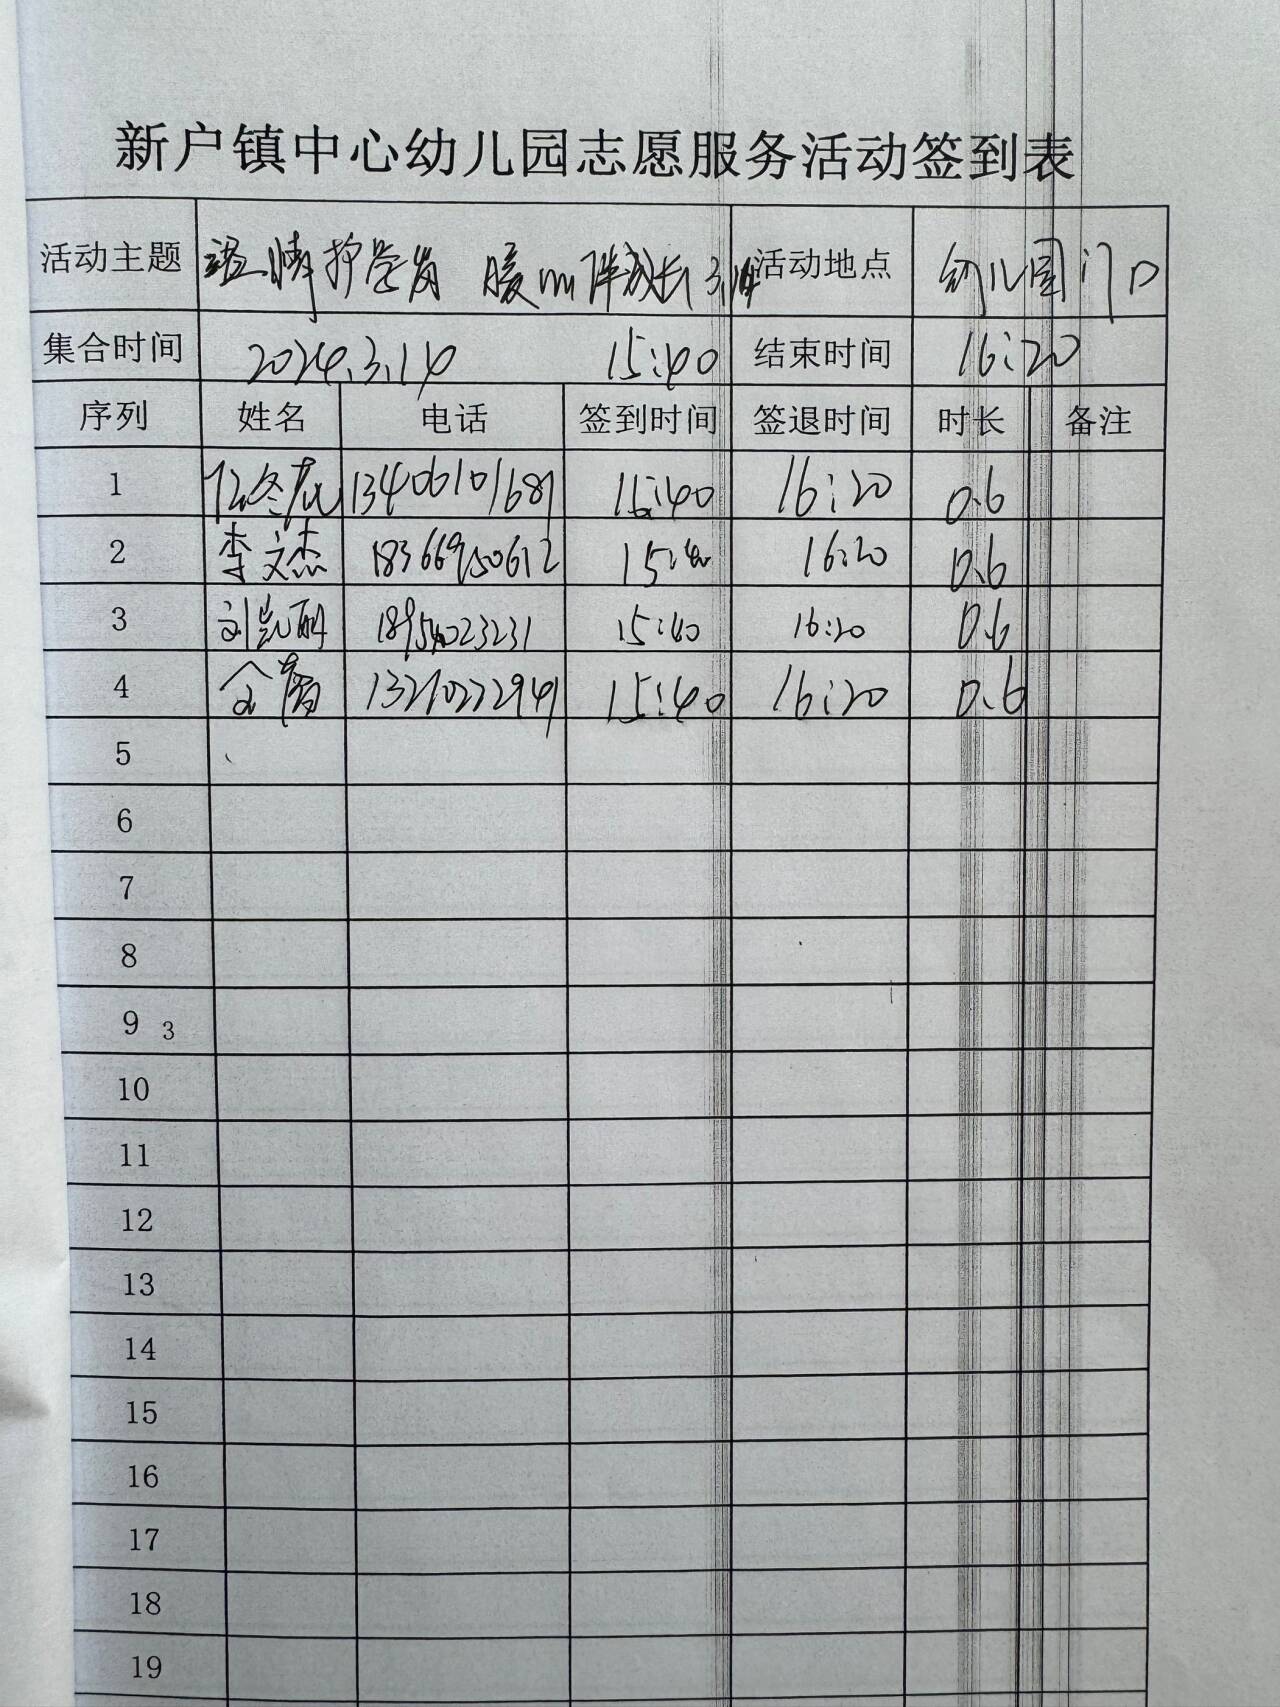 新户镇中心幼儿园志愿服务活动签到表
活动主题 护学岗 暖心伴成长 3.14 活动地点 幼儿园门口
集合时间 2024.3.14 15:40 结束时间 16:20
序列 姓名 电话 签到时间 签退时间 时长 备注
1 13406101681 15:40 16:20 0.6
2 李文杰 18366950612 15:40 16:20 0.6
3 刘凯丽 18954023231 15:40 16:20 0.6
4 13210222941 15:40 16:20 0.6
5
6
7
8
9 3
10
11
12
13
14
15
16
17
18
19